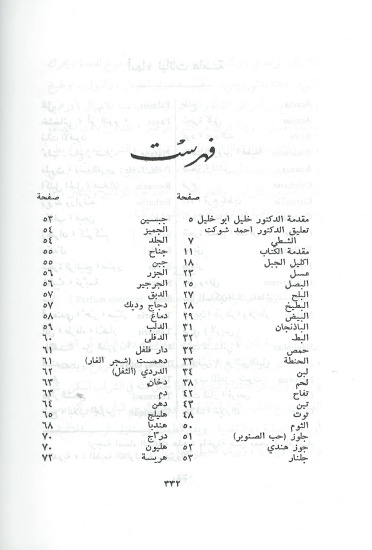 فهرست
صفحة
مقدمة الدكتور خليل ابو خليل ٥
تعليق الدكتور احمد شوكت
الشطي ٧
مقدمة الكتاب ١١
اكليل الجبل ١٨
عسل ٢٣
البصل ٢٥
البلح ٢٧
البطيخ ٢٨
البيض ٢٩
الباذنجان ٣١
البط ٣٢
حمص ٣٢
الحنطة ٣٣
لبن ٣٤
لحم ٣٨
تفاح ٤٢
تين ٤٣
توت ٤٨
الثوم ٥٠
جلوز (حب الصنوبر) ٥١
جوز هندي ٥٢
جلنار ٥٣
صفحة
جبسين ٥٣
الجميز ٥٤
الجلد ٥٤
جناح ٥٥
جبن ٥٥
الجزر ٥٦
الجرجير ٥٦
الدبق ٥٧
دجاج وديك ٥٧
دماغ ٥٨
الدلب ٥٩
الدفلى ٦٠
دار فلفل ٦١
دهمست (شجر الغار) ٦١
الدردي (الثفل) ٦٢
دخان ٦٣
دم ٦٣
دهن ٦٤
هليلج ٦٥
هندبا ٦٨
دراج ٧٠
هليون ٧٠
هريسة ٧٢
٣٣٢